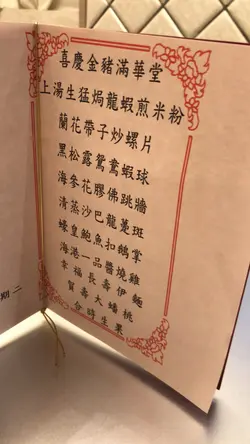 喜慶金豬滿華堂
上湯生猛焗龍蝦煎米粉
蘭花帶子炒螺片
黑松露鴛鴦蝦球
海參花膠佛跳牆
清蒸沙巴龍躉斑
蠔皇鮑魚扣鵝掌
海港一品醬燒雞
幸福長壽伊麵
賀壽大蟠桃
合時生果
期二